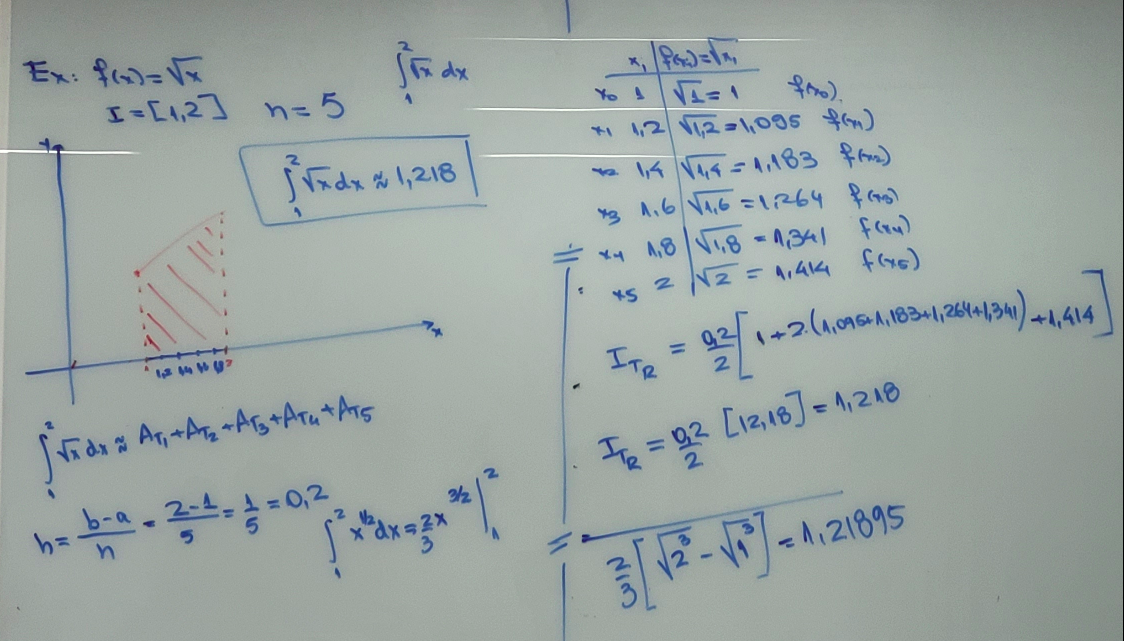 Ex: f(x)=√x
I=[1,2] n=5
∫₁² √x dx
∫₁² √x dx ≈ 1,218
y
x
1,2 1,4 1,6 1,8 2
∫₁² √x dx ≈ A_T₁+A_T₂+A_T₃+A_T₄+A_T₅
h = (b-a)/n = (2-1)/5 = 1/5 = 0,2
∫₁² x^(1/2) dx = 2/3 x^(3/2) |₁²
xᵢ | f(xᵢ)=√xᵢ
x₀ 1 | √1 = 1 f(x₀).
x₁ 1,2 | √1,2 = 1,095 f(x₁)
x₂ 1,4 | √1,4 = 1,183 f(x₂)
x₃ 1,6 | √1,6 = 1,264 f(x₃)
x₄ 1,8 | √1,8 = 1,341 f(x₄)
x₅ 2 | √2 = 1,414 f(x₅)
I_TR = 0,2/2 [1+2.(1,095+1,183+1,264+1,341)+1,414]
I_TR = 0,2/2 [12,18] = 1,218
= 2/3 [√2³ - √1³] = 1,21895